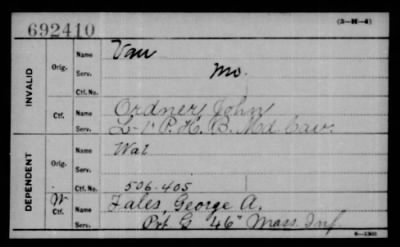 692410
(3-H-4)
INVALID
Orig.
Name
Van
Serv.
Mo.
Ctf. No.
Ctf.
Name
Ordner, John
Serv.
L 1" P. H. B. Md. Cav.
DEPENDENT
Orig.
Name
War
Serv.
Ctf. No.
506.405
W
Ctf.
Name
Fales, George A.
Serv.
Pvt G 46" Mass. Inf